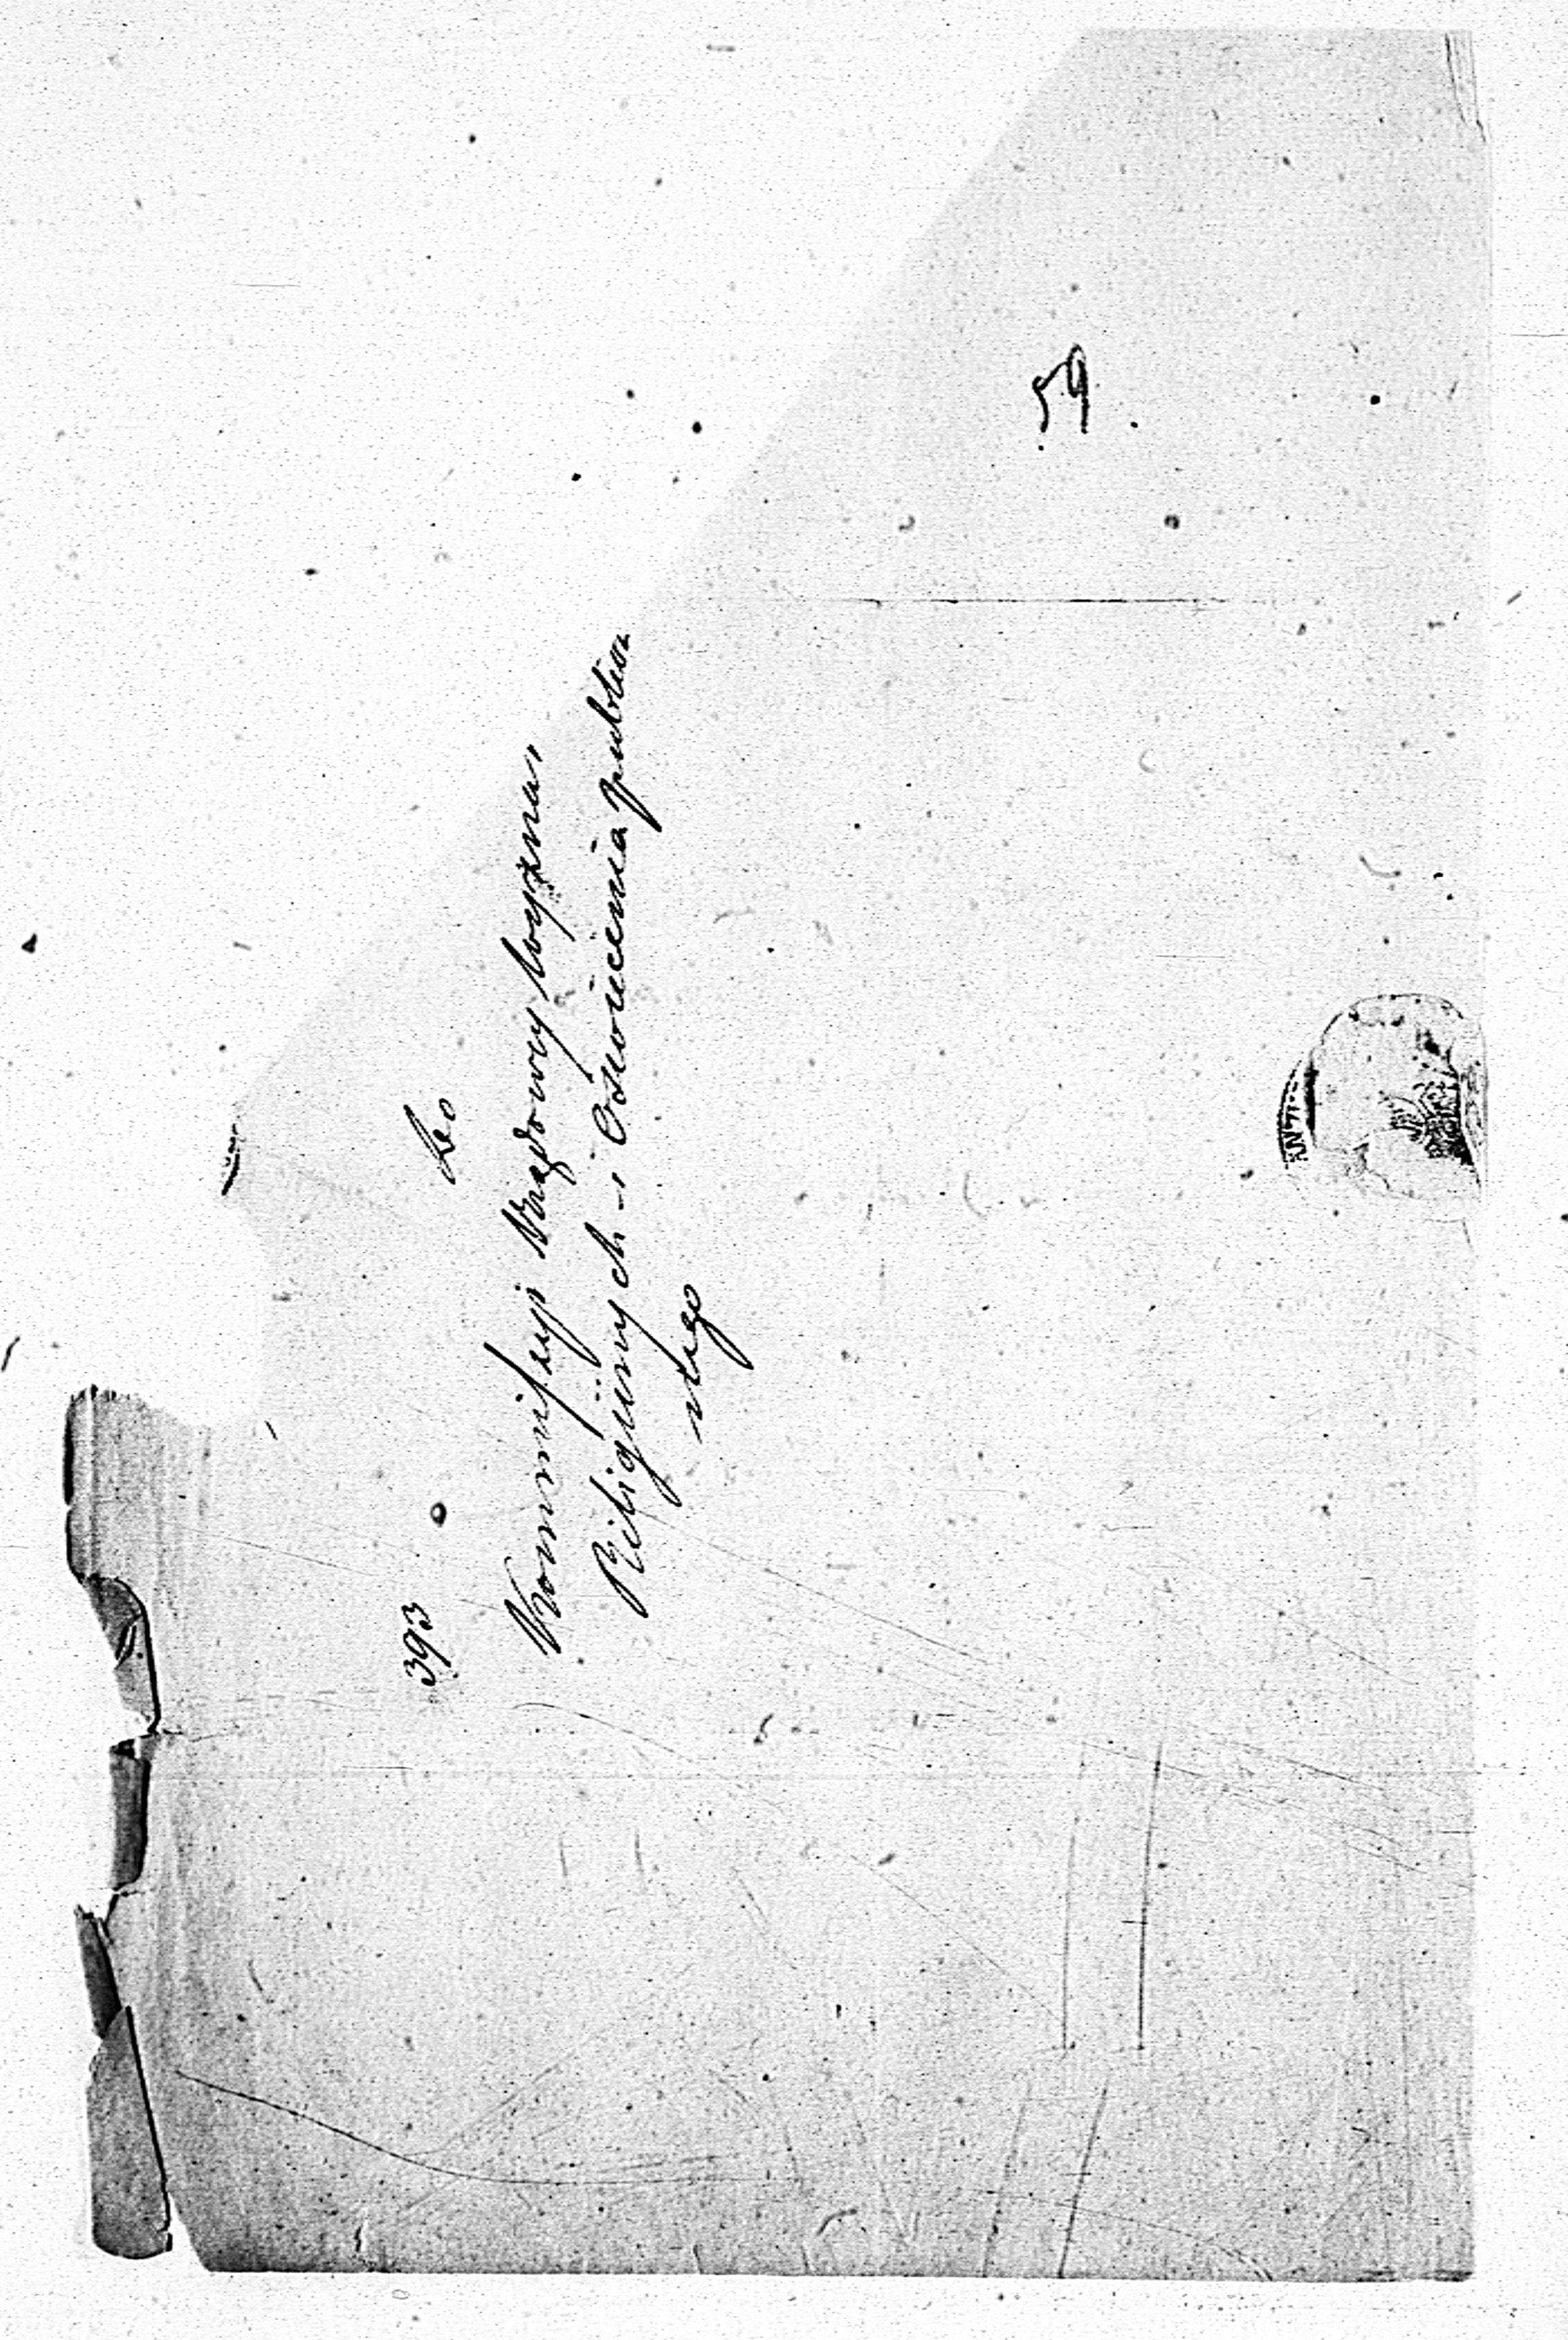 393
Do
Kommissyi Rządowy Wyznań
Religiinych i Oświecenia publicz
nego
59.